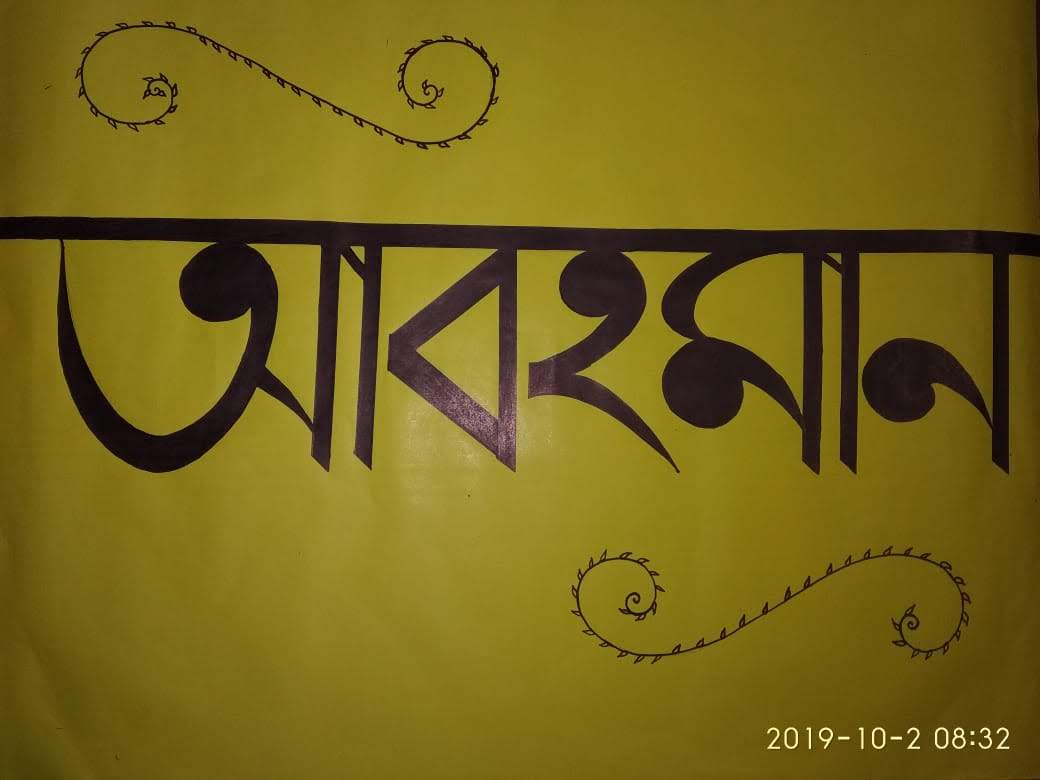 আবহমান
2019-10-2 08:32